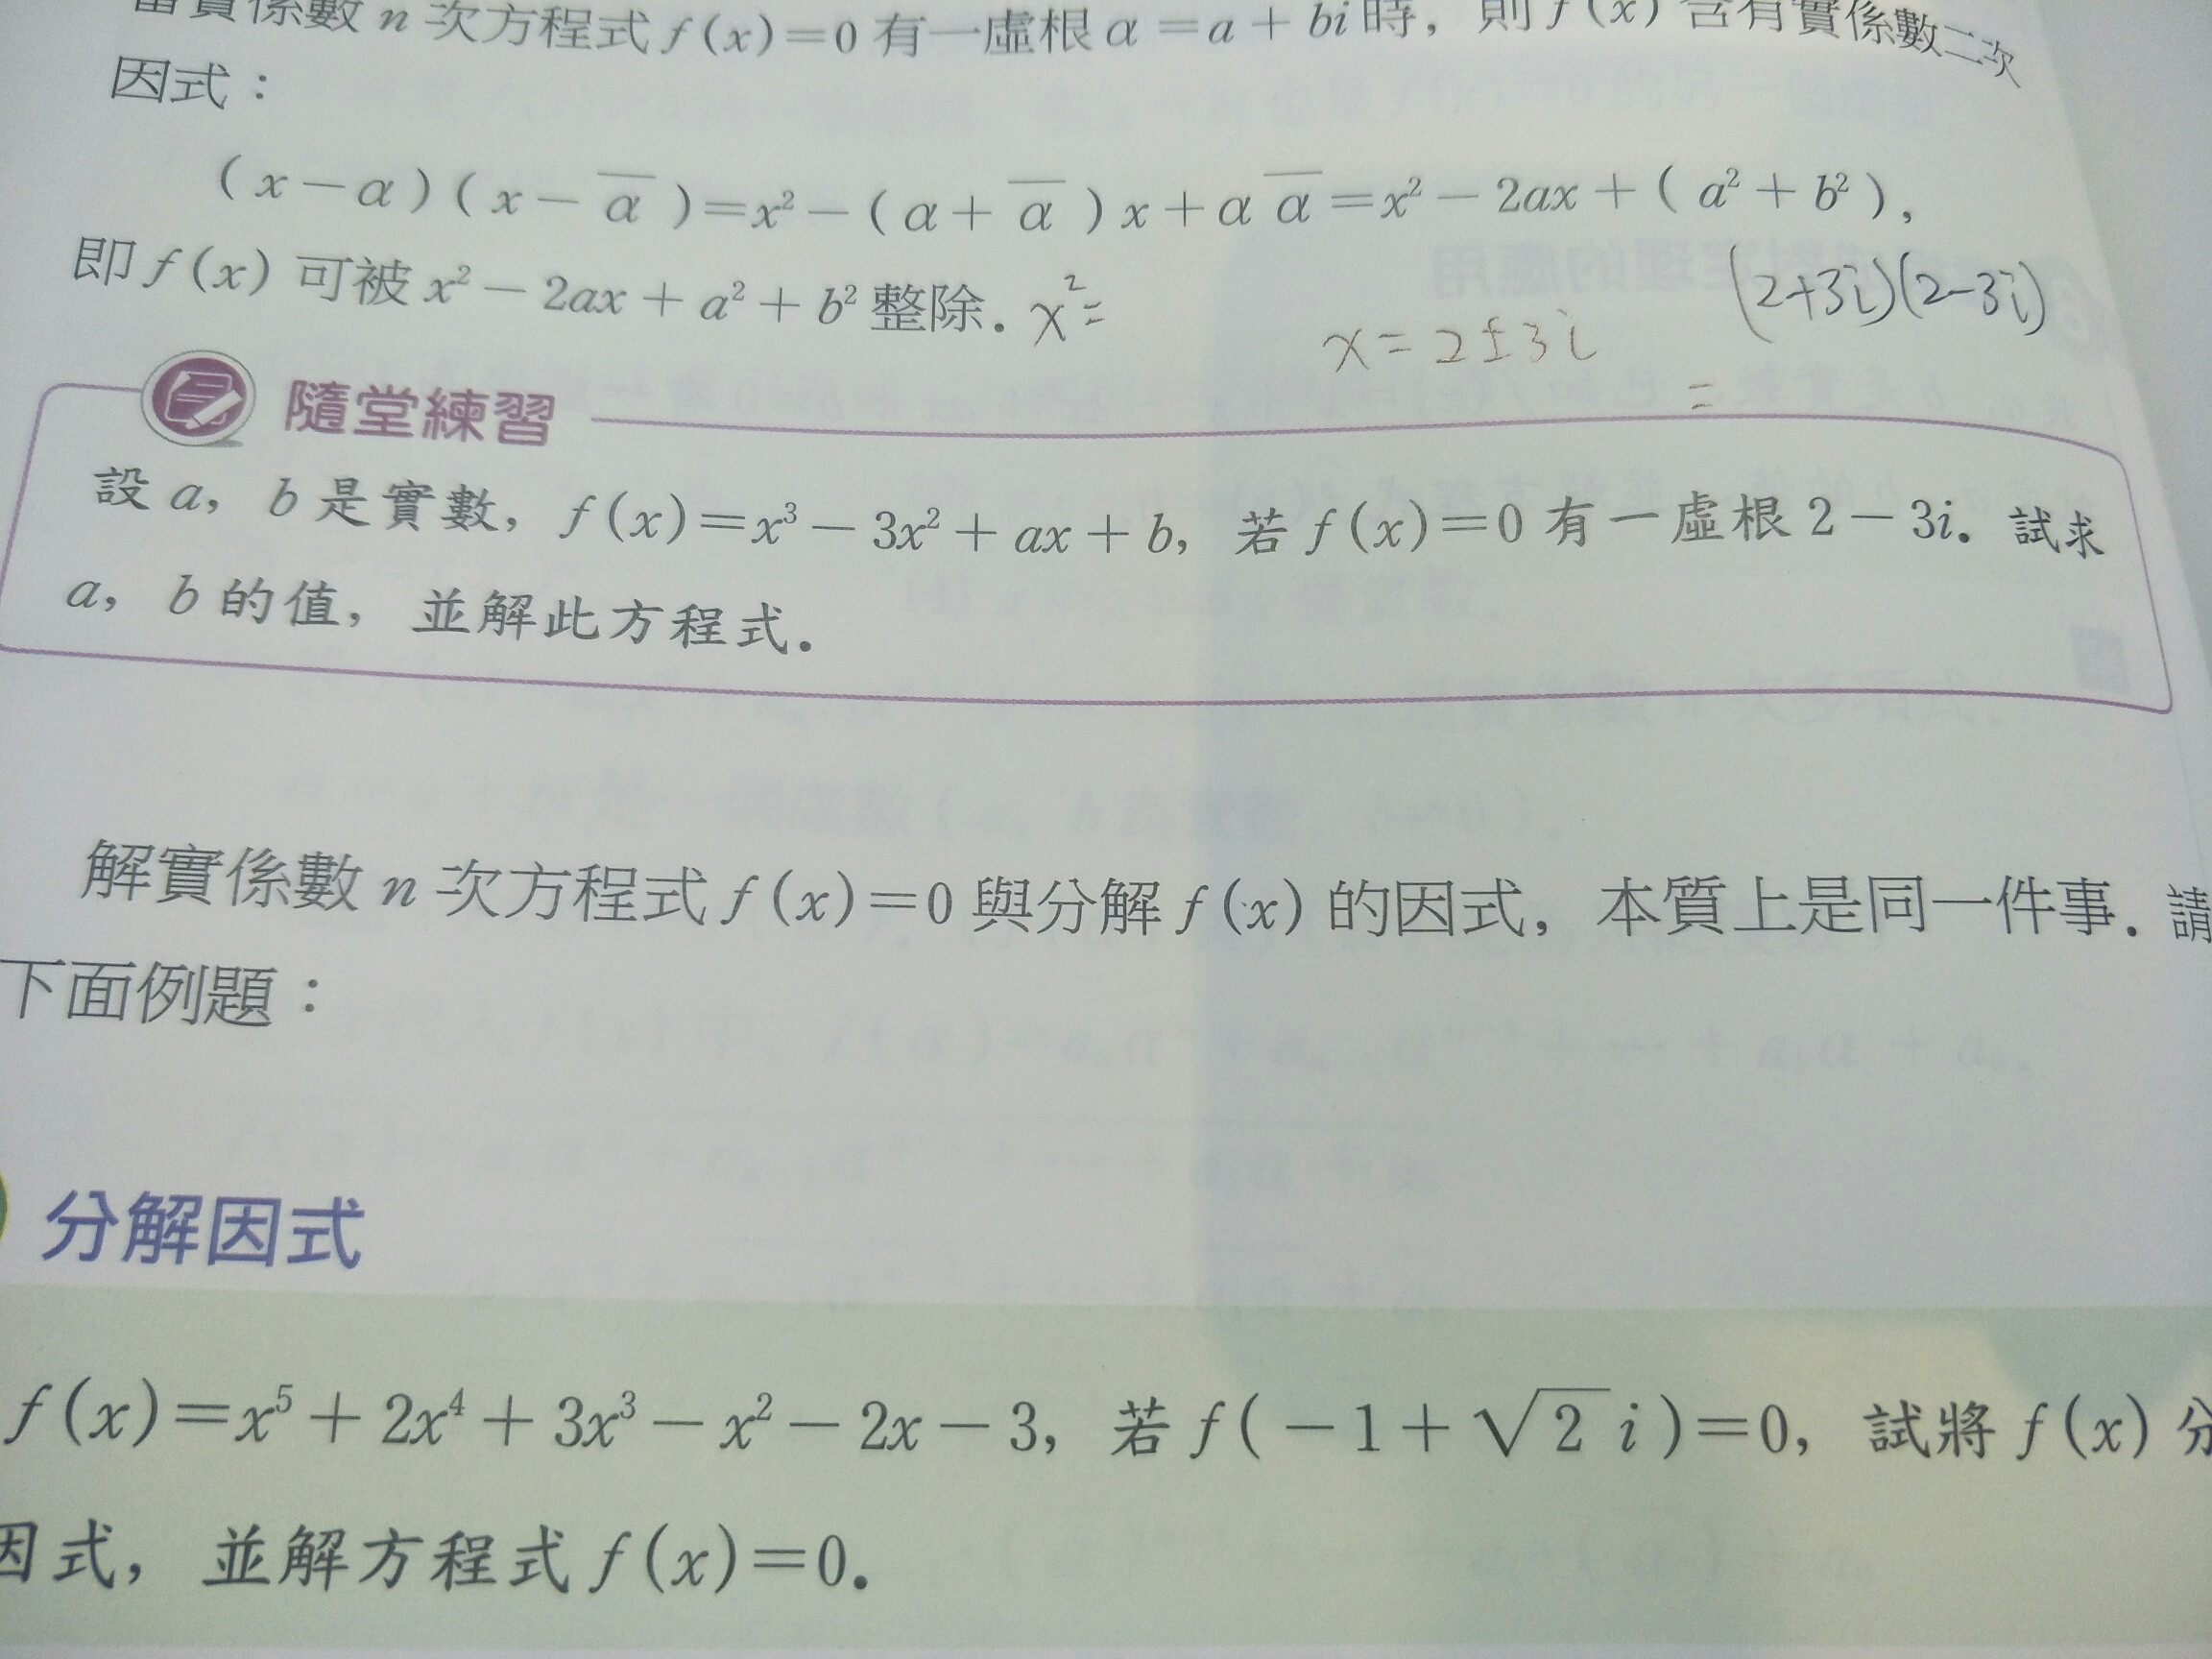 當實係數 n 次方程式 f(x)=0 有一虛根 α = a + bi 時，則 f(x) 含有實係數二次
因式：
(x－α)(x－α̅)=x²－(α＋α̅)x＋αα̅=x²－2ax＋(a²＋b²)，
即 f(x) 可被 x²－2ax＋a²＋b² 整除． x²=
x = 2±3i
(2+3i)(2-3i)
=
隨堂練習
設 a，b 是實數，f(x)=x³－3x²＋ax＋b，若 f(x)=0 有一虛根 2－3i．試求
a，b 的值，並解此方程式．
解實係數 n 次方程式 f(x)=0 與分解 f(x) 的因式，本質上是同一件事．請
下面例題：
分解因式
f(x)=x⁵＋2x⁴＋3x³－x²－2x－3，若 f(－1＋√2 i)=0，試將 f(x) 分
因式，並解方程式 f(x)=0．